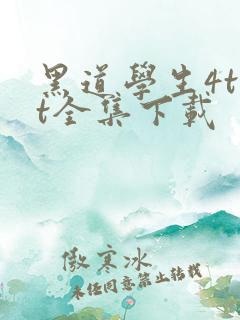 黑道學生4t
t全集下載
傲寒冰
未经同意禁止转载